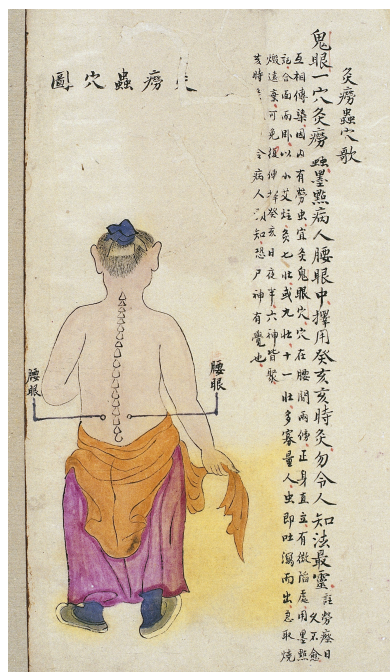 灸癆蟲穴歌
鬼眼一穴灸癆蟲墨點病人腰眼中擇用癸亥亥時灸勿令人知法最靈
註勞瘵日
久不愈
互相傳染因內有勞虫宜灸鬼眼穴穴在腰間兩傍正身直立有微陷處用墨點
記合面而卧以小艾炷灸七壯或九壯十一壯多寡量人虫即吐瀉而出急取燒
燬遠棄可免復伸擇癸亥日夜半六神皆聚
亥時令病人知恐尸神有覺也
癆蟲穴圖
腰眼
腰眼